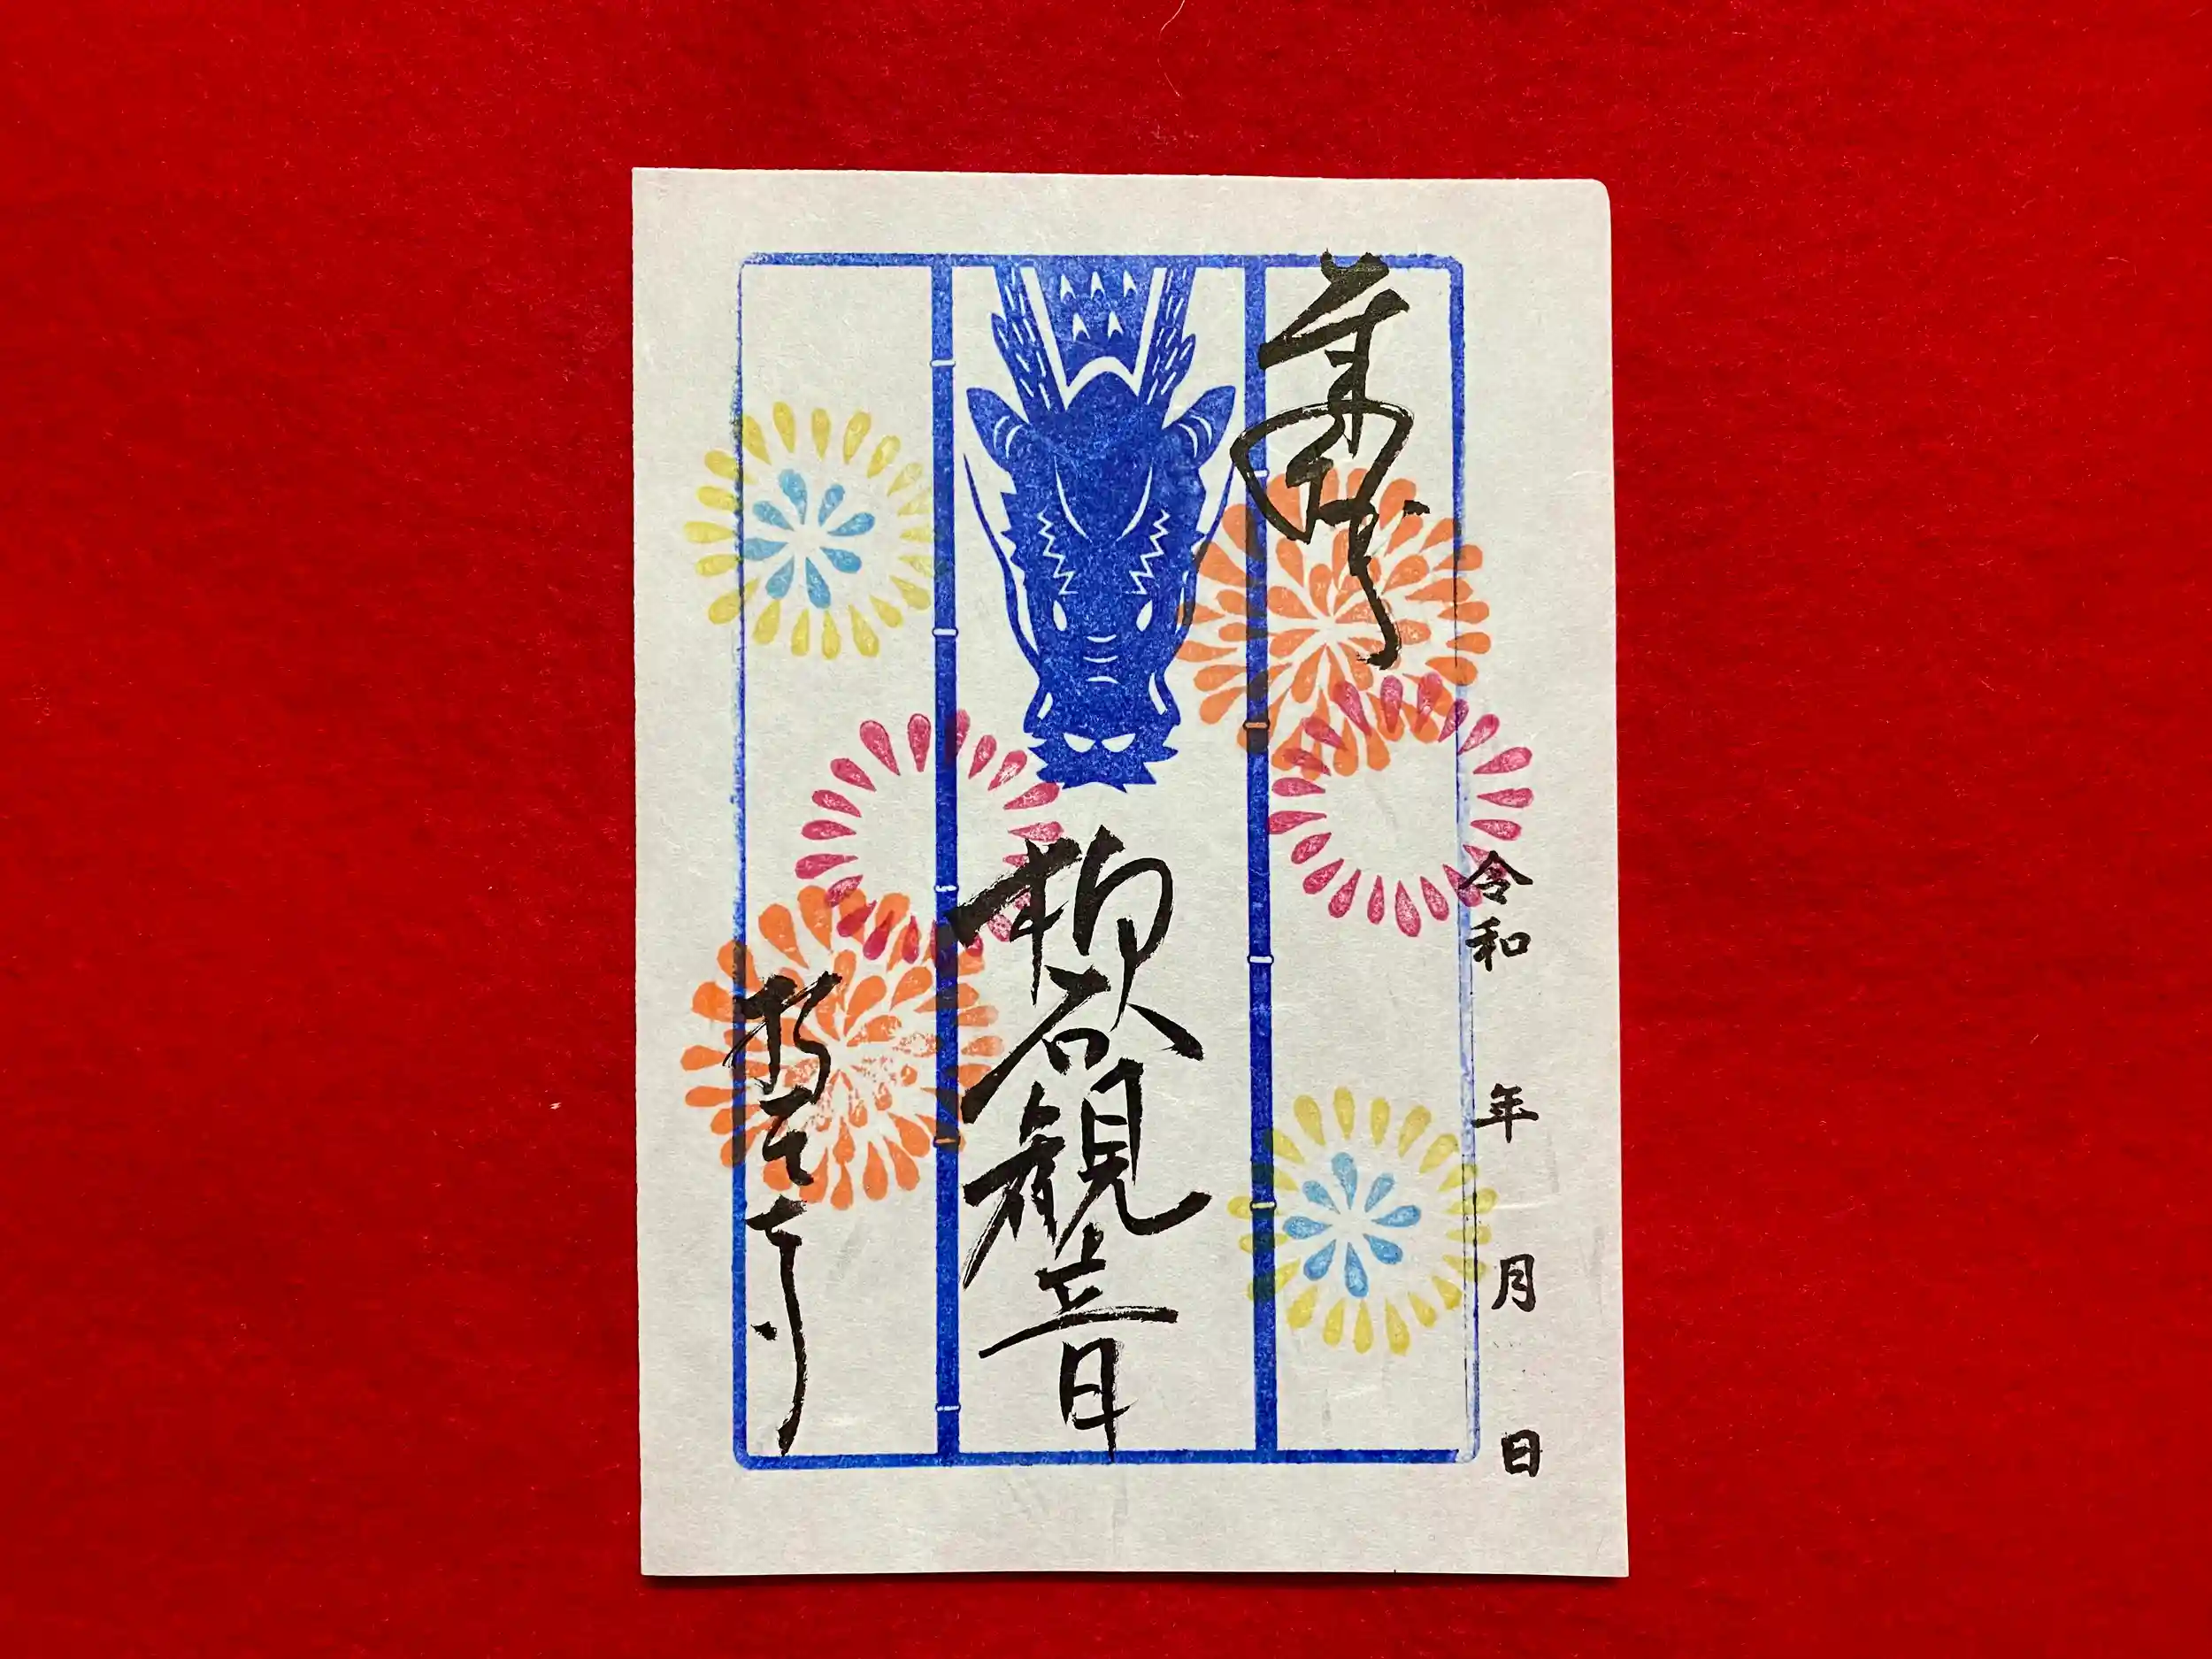 令和 年 月 日
奉拝
柳谷観音
楊谷寺